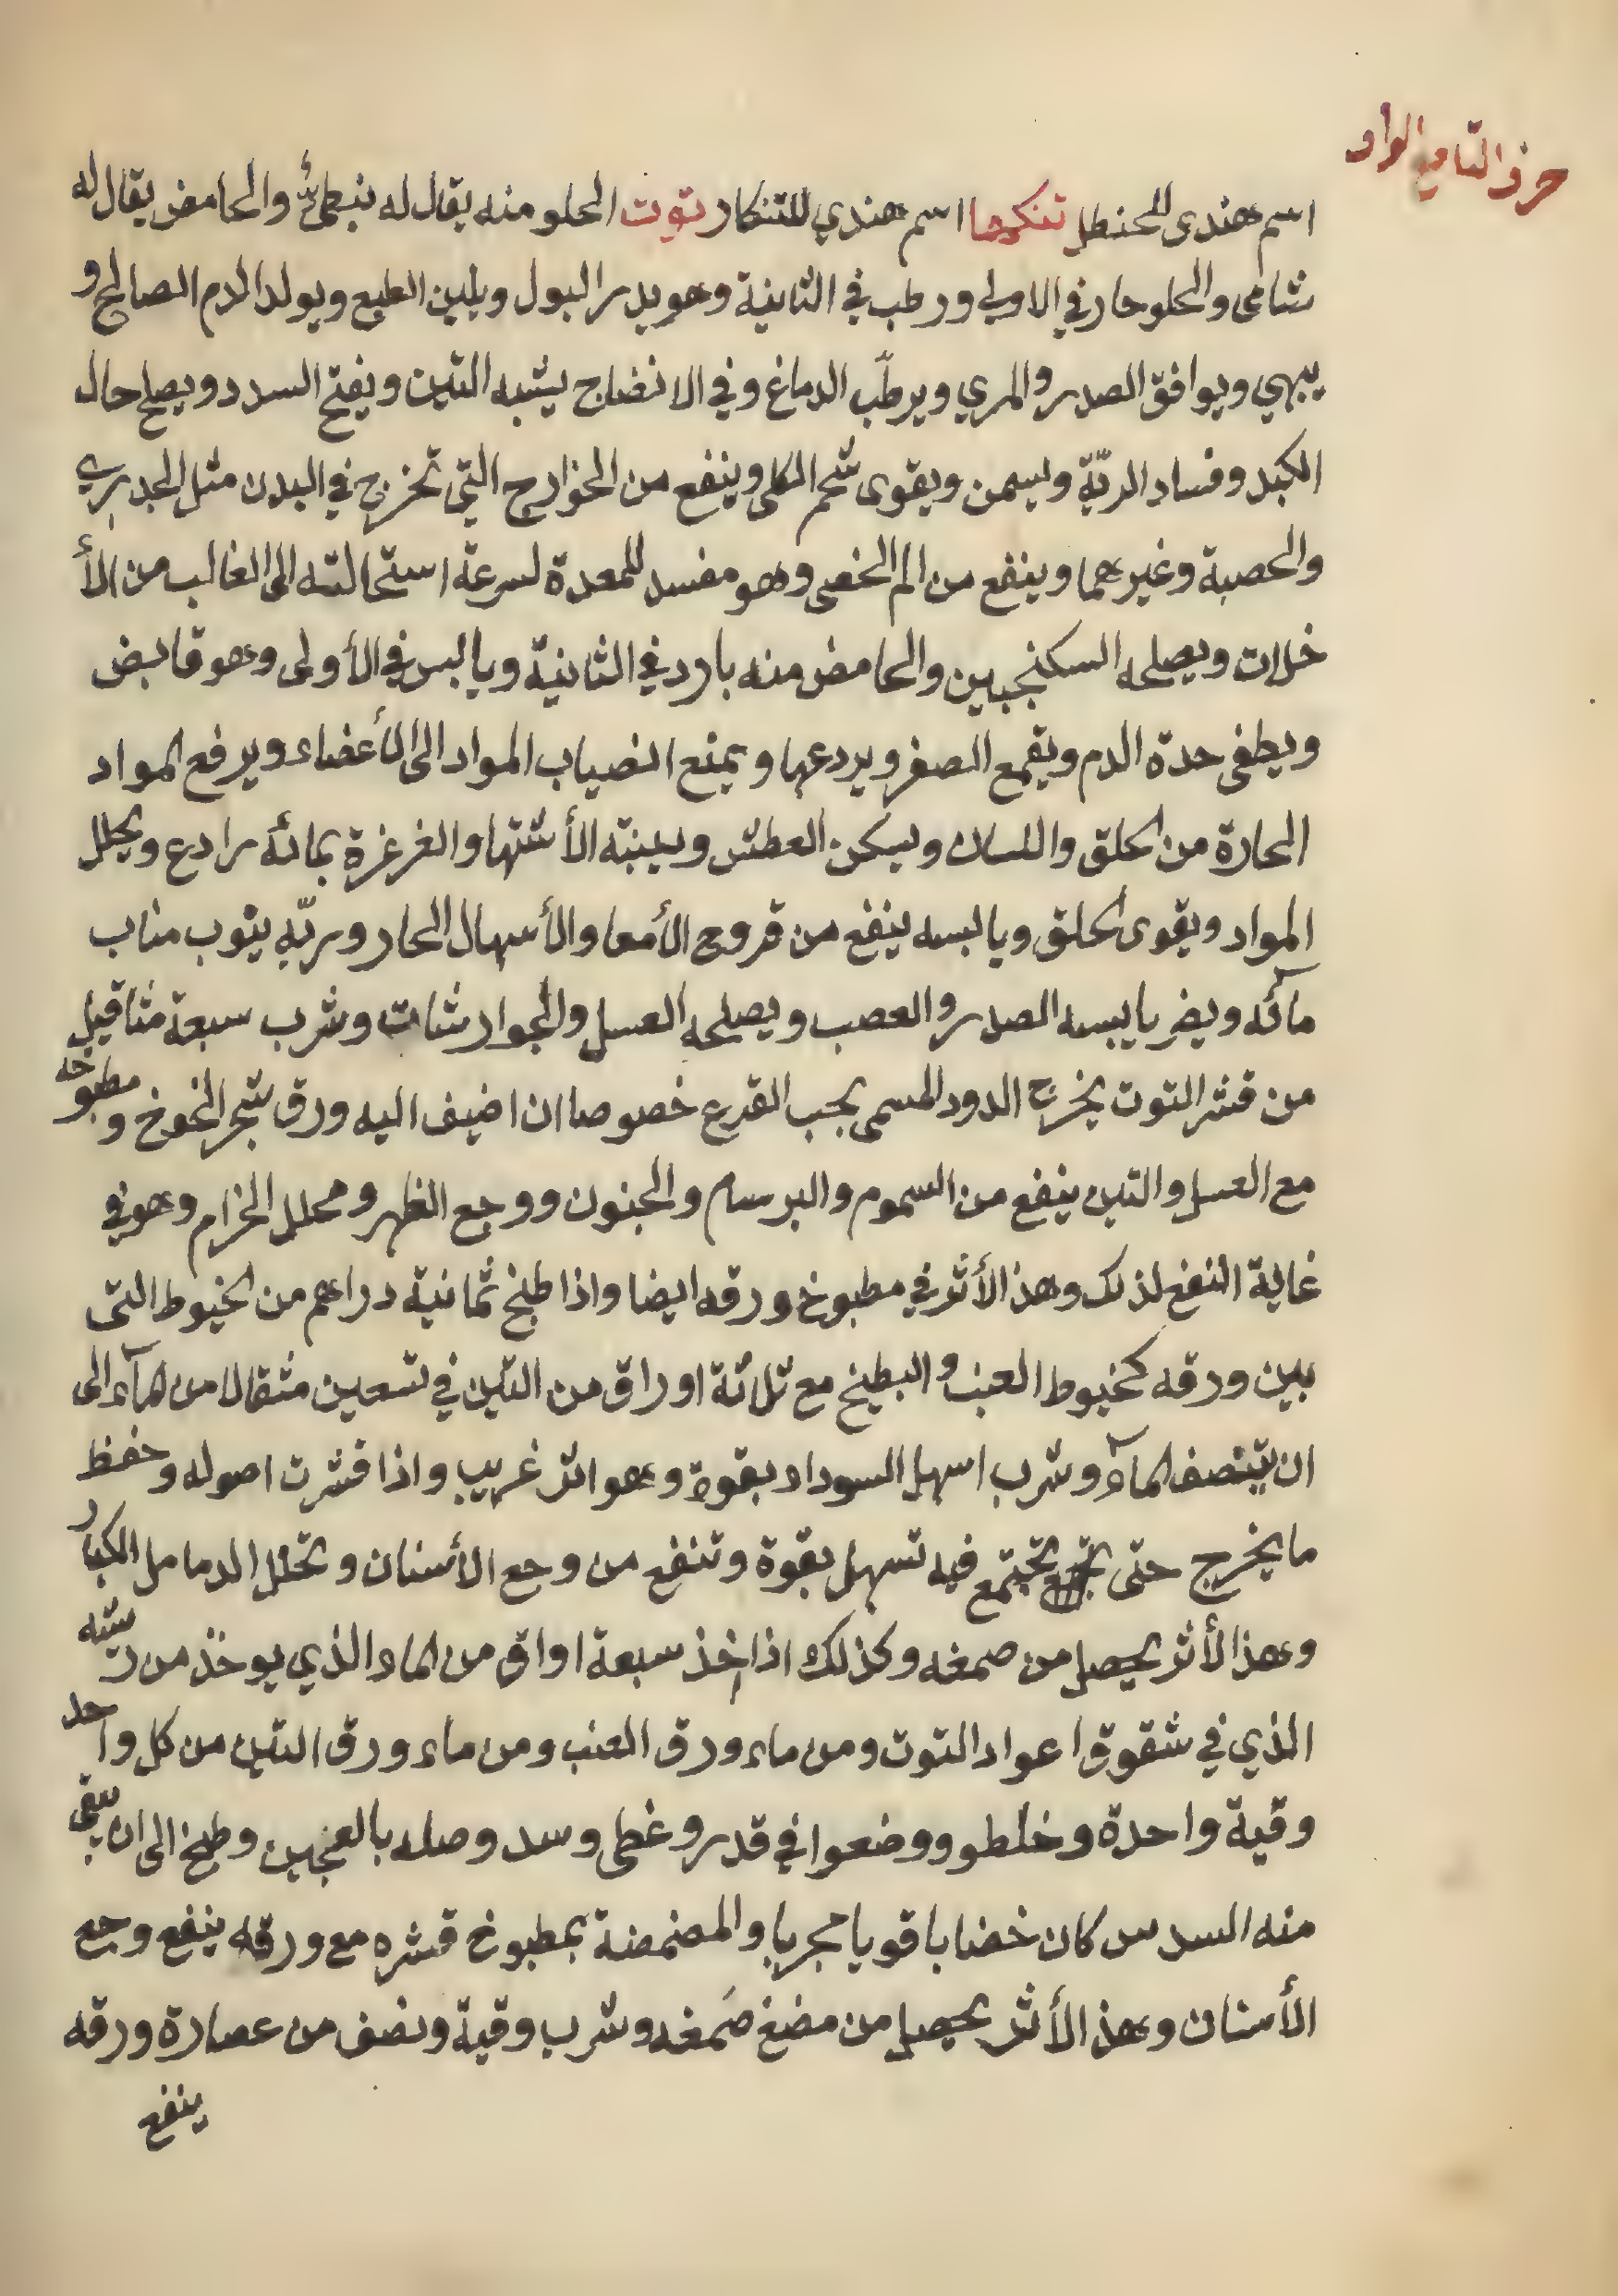 حرف التا مع الواو
اسم هندى للحنطل تنكرها اسم هندي للتنكار توت الحلو منه يقال له نبطئ والحامض يقال له
شامى والحلو حار في الاولى ورطب في الثانية وهو يدر البول ويلين الطبع ويولد الدم الصالح و
يبهي ويوافق الصدر والمري ويرطّب الدماغ وفي الانضاج يشبه التين ويفتح السدد ويصلح حال
الكبد وفساد الريّة ويسمن ويقوى شحم الكلى وينفع من الخوارج التي تخرج في البدن مثل الجدري
والحصبة وغيرهما وينفع من الم الخصى وهو مفسد للمعدة لسرعة استحالته الى الغالب من الأ
خلات ويصلحه السكنجبين والحامض منه بارد في الثانية ويابس في الأولى وهو قابض
ويطفى حدة الدم ويقمع الصفرو يردعها ويمنع انصباب المواد الى الأعضاء ويرفع المواد
الحارة من الحلق واللسان ويسكن العطش وينبته الأشتها والغرغرة بمائه رادع ويحلل
المواد ويقوى الحلق ويابسه ينفع من قروح الأمعا والأسهال الحار وربّه ينوب مناب
مآئه ويضر يابسه الصدر والعصب ويصلحه العسل والجوارشات وشرب سبعة مثاقيل
من قشر التوت يخرج الدود المسمى بحب القرع خصوصا ان اضيف اليه ورق شجر الخوخ و مطبوخه
مع العسل والتين ينفع من السموم والبرسام والجنون ووجع الظهر ومحلل الخزام وهو في
غاية النفع لذلك وهذ الأثر في مطبوخ ورقه ايضا واذا طبخ ثمانية دراهم من الخيوط التى
بين ورقه كخيوط العنب والبطيخ مع ثلاثة اوراق من التين في تسعين مثقالا من المآء الى
ان يتنصف المآء وشرب اسهل السوداد بقوة وهو اثر غريب واذا قشرت اصوله وحفظ
ما يخرج حتى تجتمع فيه تسهل بقوة وتنفع من وجع الأسنان وتحلل الدمامل الكبار
وهذ الأثر يحصل من صمغه وكذلك اذا اخذ سبعة اواق من الماء الذي يوخذ من رشه
الذي في شقوق اعواد التوت ومن ماء ورق العنب ومن ماء ورق التين من كل واحد
وقية واحدة وخلطو ووضعوا في قدر وغطى وسد وصله بالعجين وطبخ الى ان يبقى
منه السدس كان خضابا قويا مجربا والمضمضة بمطبوخ قشره مع ورقه ينفع وجع
الأسنان وهذ الأثر يحصل من مضغ صَمغه وشرب وقية ونصف من عصارة ورقه
ينفع